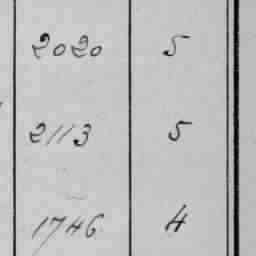 2020 5
2113 5
1746 4